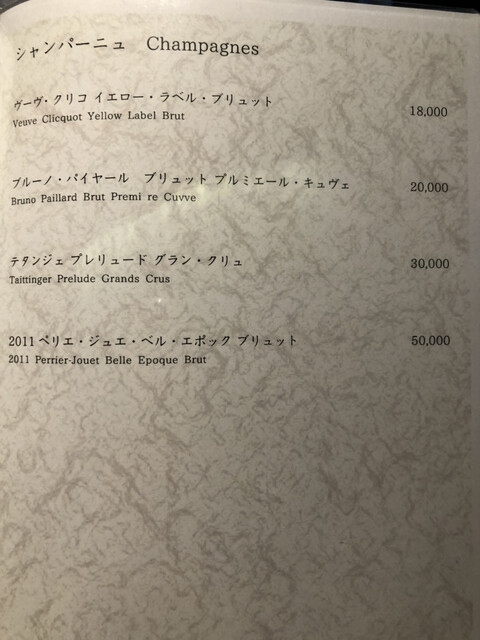 シャンパーニュ Champagnes
ヴーヴ・クリコ イエロー・ラベル・ブリュット 18,000
Veuve Clicquot Yellow Label Brut
ブルーノ・パイヤール ブリュット プルミエール・キュヴェ 20,000
Bruno Paillard Brut Premi re Cuvve
テタンジェ プレリュード グラン・クリュ 30,000
Taittinger Prelude Grands Crus
2011 ペリエ・ジュエ・ベル・エポック ブリュット 50,000
2011 Perrier-Jouet Belle Epoque Brut